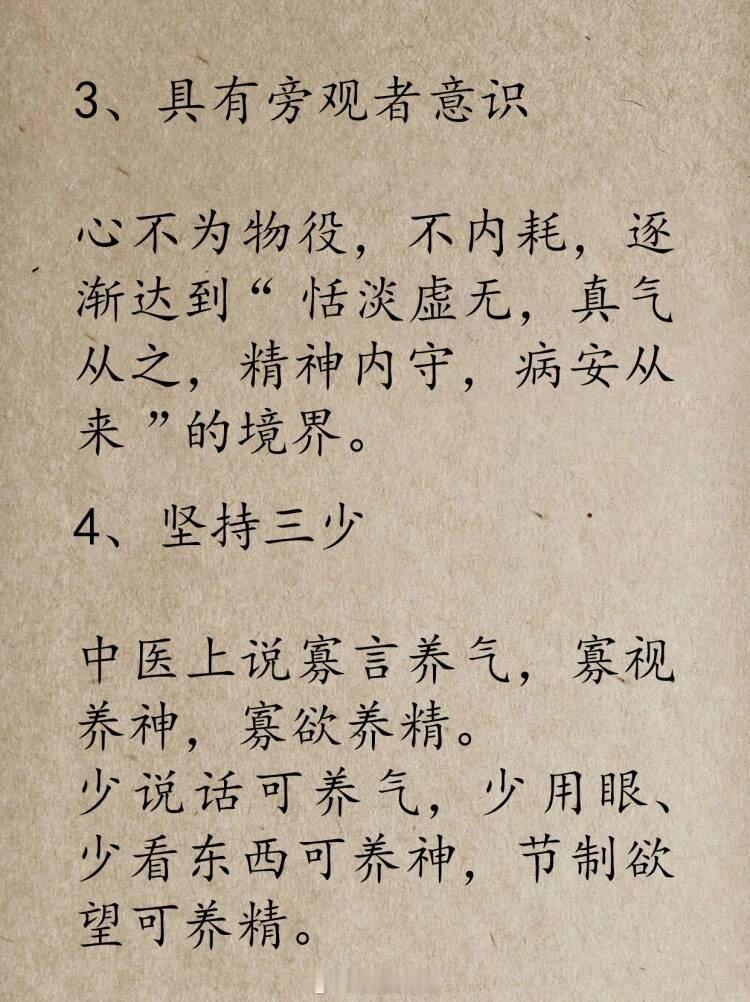 3、具有旁观者意识
心不为物役，不内耗，逐
渐达到“恬淡虚无，真气
从之，精神内守，病安从
来”的境界。
4、坚持三少
中医上说寡言养气，寡视
养神，寡欲养精。
少说话可养气，少用眼、
少看东西可养神，节制欲
望可养精。